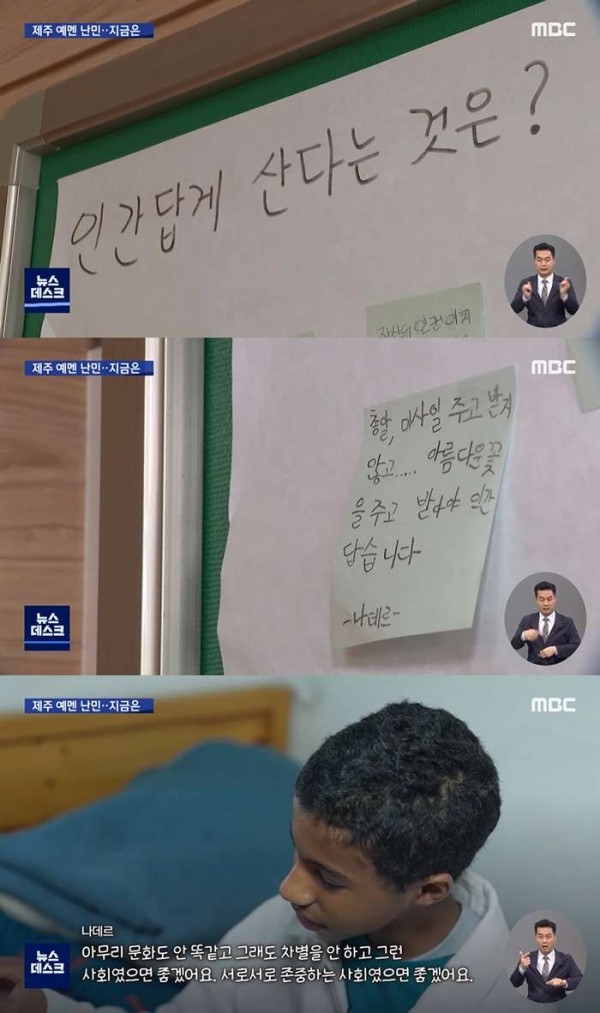 제주 예멘 난민‥지금은
MBC
인간답게 산다는 것은?
뉴스
데스크
제주 예멘 난민‥지금은
MBC
총알, 미사일 주고 받지
않고..... 아름다운 꽃
을 주고 받아야 인간
답습니다
-나데르-
뉴스
데스크
제주 예멘 난민‥지금은
MBC
나데르
아무리 문화도 안 똑같고 그래도 차별을 안 하고 그런
사회였으면 좋겠어요. 서로서로 존중하는 사회였으면 좋겠어요.
뉴스
데스크